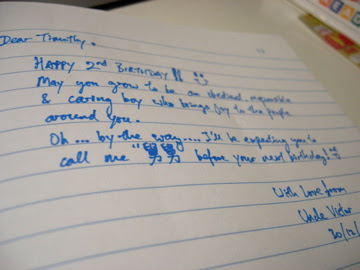 Dear Timothy,
HAPPY 2nd BIRTHDAY!!
May you grow to be an obedient, responsible
& caring boy who brings joy to the people
around you.
Oh... by the way.... I'll be expecting you to
call me " " before your next birthday!
With Love from
Uncle Victor
20/12/